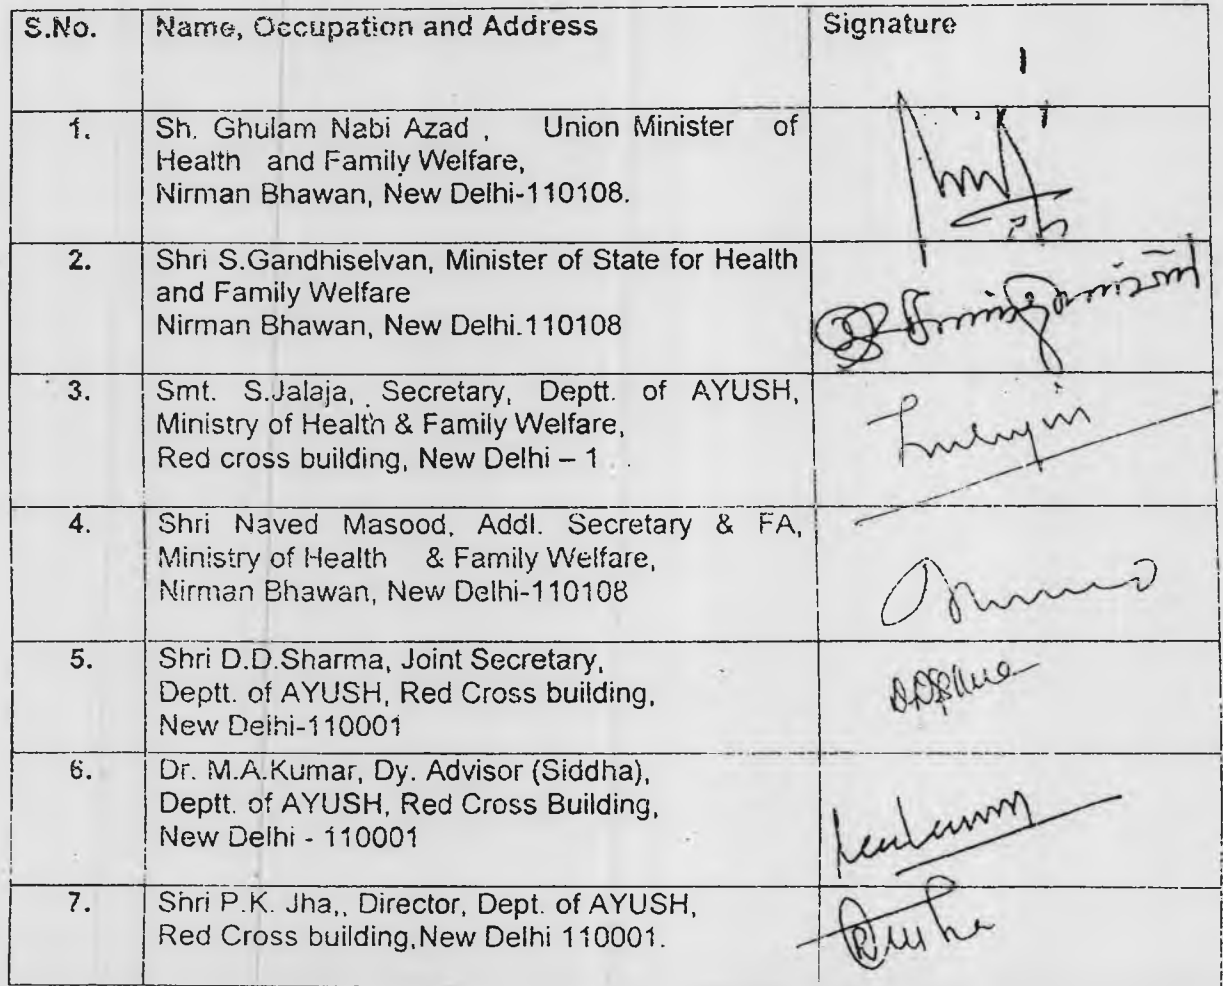 S.No. Name, Occupation and Address Signature
1. Sh. Ghulam Nabi Azad , Union Minister of
Health and Family Welfare,
Nirman Bhawan, New Delhi-110108.
2. Shri S.Gandhiselvan, Minister of State for Health
and Family Welfare
Nirman Bhawan, New Delhi.110108
3. Smt. S.Jalaja, Secretary, Deptt. of AYUSH,
Ministry of Health & Family Welfare,
Red cross building, New Delhi – 1
4. Shri Naved Masood, Addl. Secretary & FA,
Ministry of Health & Family Welfare,
Nirman Bhawan, New Delhi-110108
5. Shri D.D.Sharma, Joint Secretary,
Deptt. of AYUSH, Red Cross building,
New Delhi-110001
6. Dr. M.A.Kumar, Dy. Advisor (Siddha),
Deptt. of AYUSH, Red Cross Building,
New Delhi - 110001
7. Shri P.K. Jha,, Director, Dept. of AYUSH,
Red Cross building,New Delhi 110001.